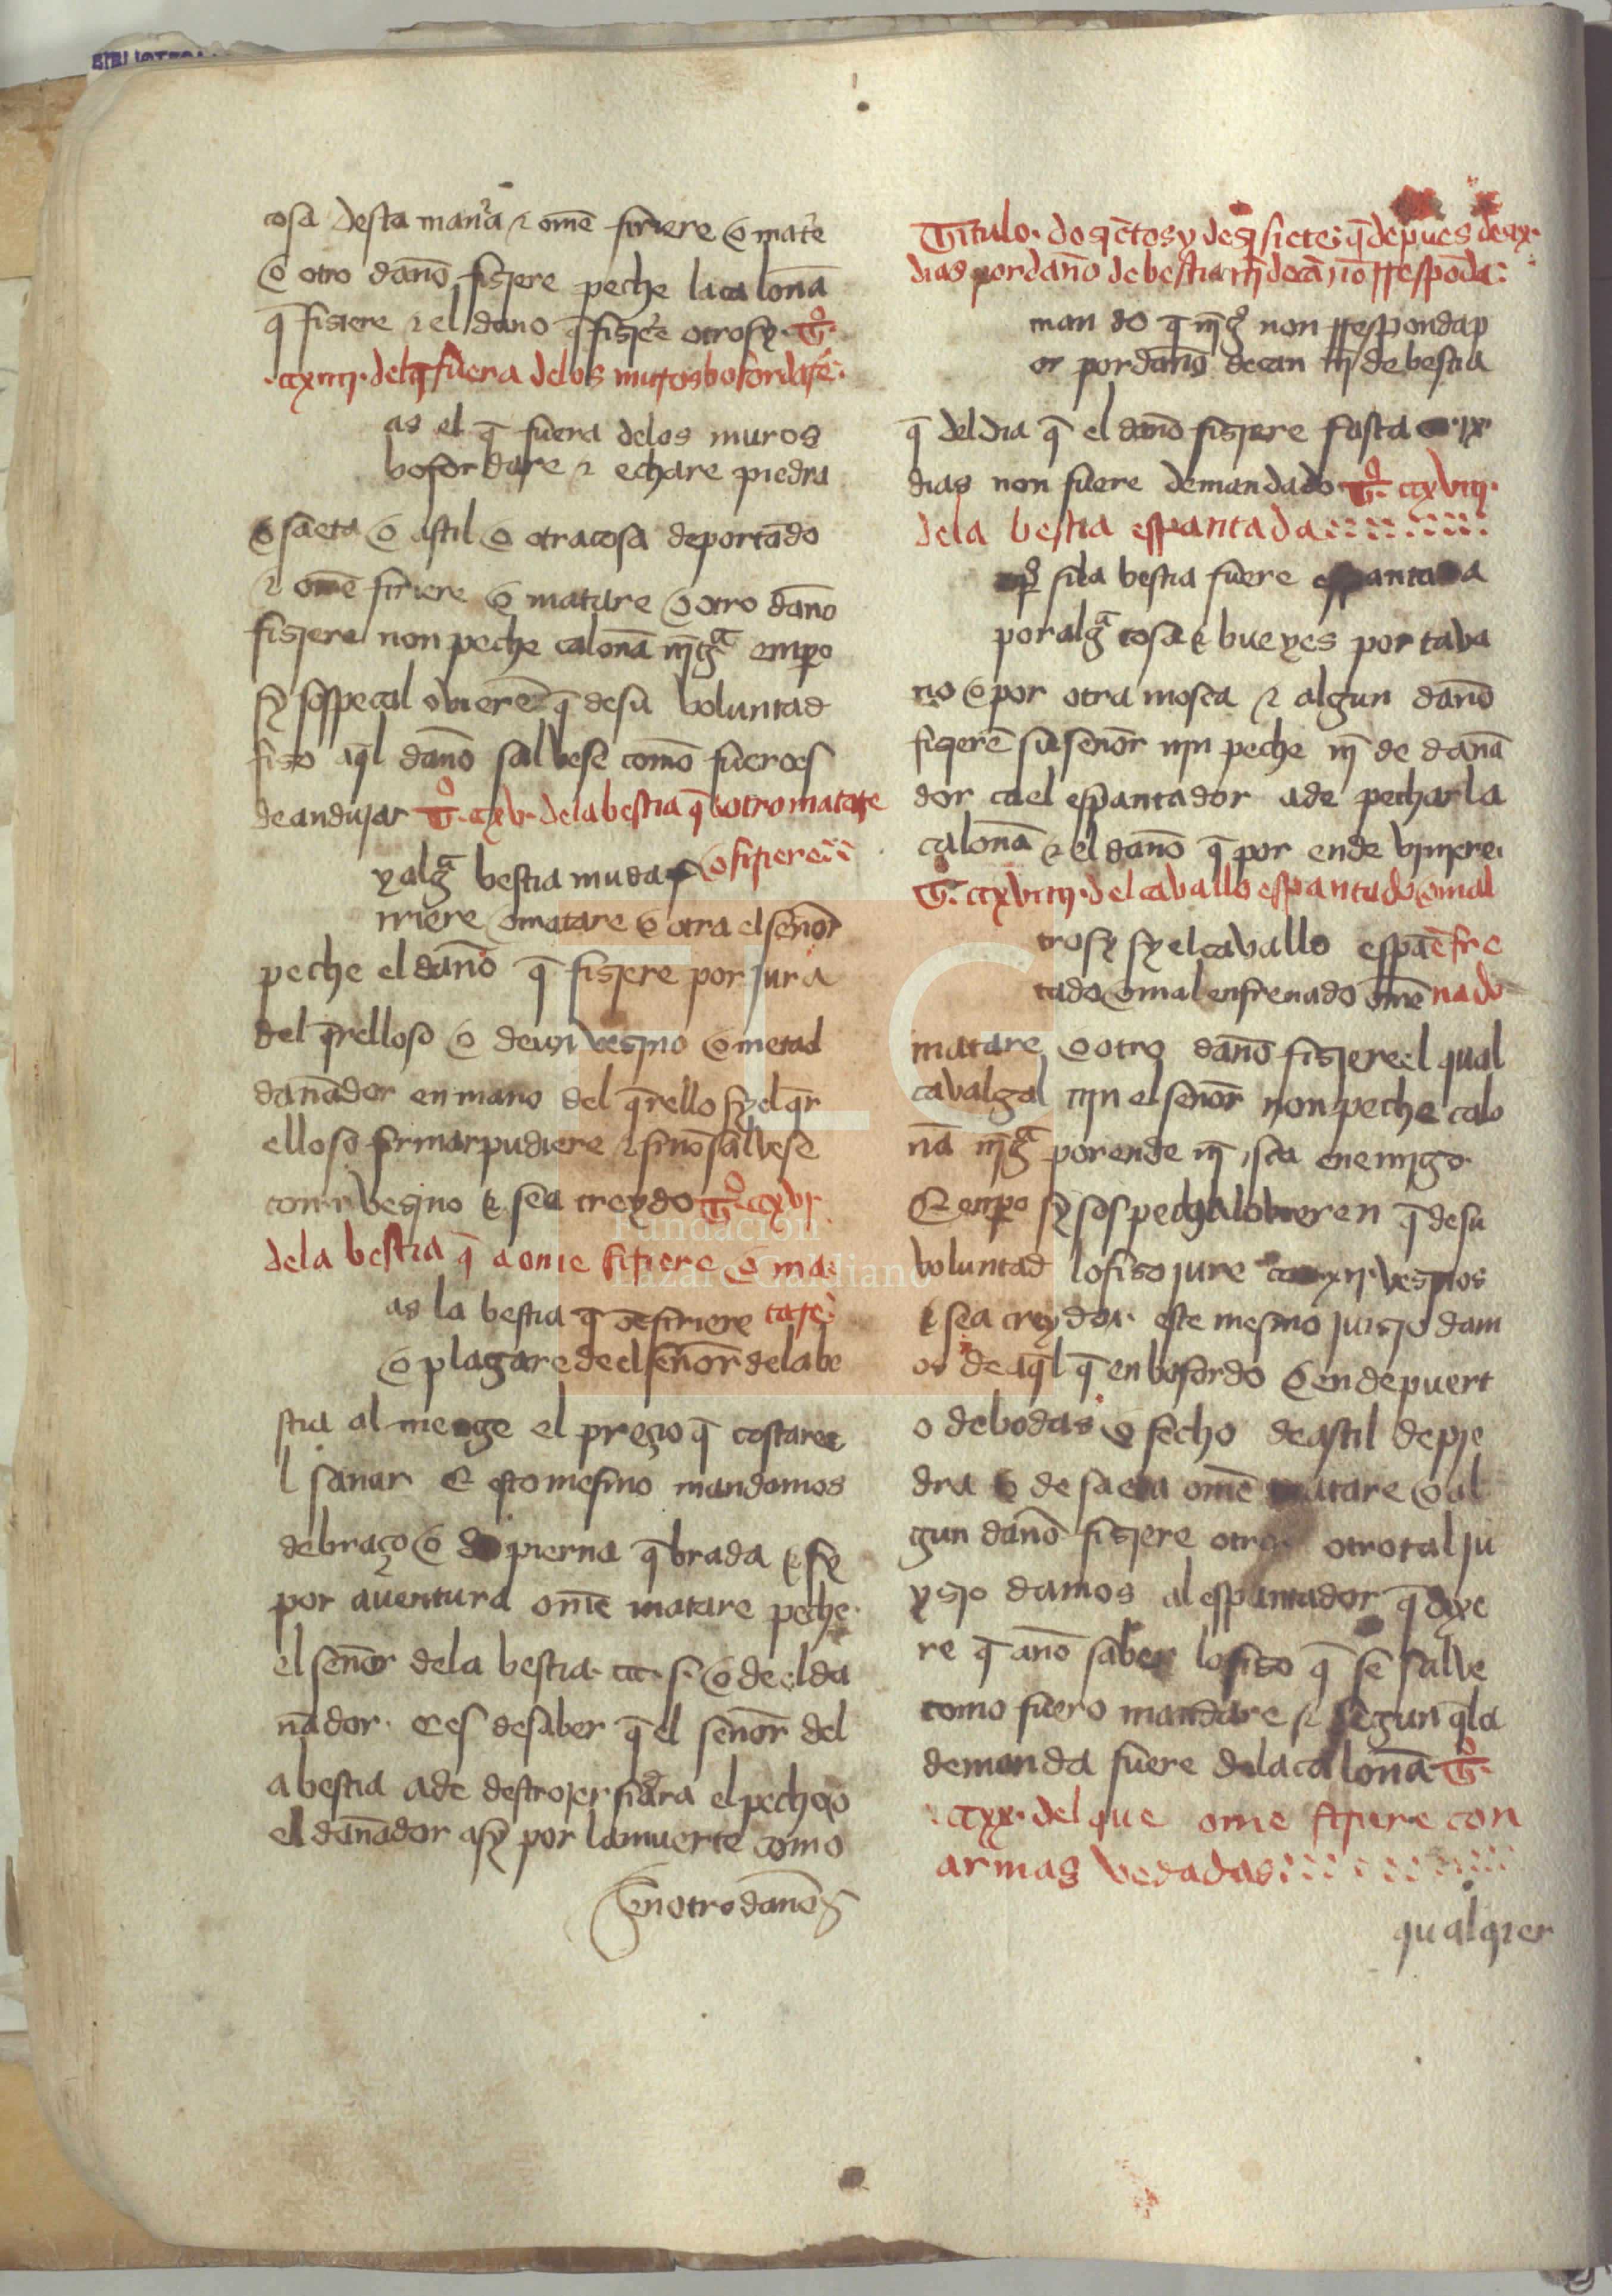 BIBLIOTECA
cosa desta man̄a ⁊ om̄e firiere o mat̄e
o otro dan̄o fisjere peche la calon̄a
q̄ fisiere ⁊ el dano q̄ fisjere otrosy. Tº.
.ccxiiij. del q̄ fuera delos muros bofordare.
as el q̄ fuera delos muros
bofordare ⁊ echare piedra
o saeta o astil o otra cosa deportādo
⁊ om̄e firiere o matare o otro dan̄o
fisjere non peche calon̄a nīgᵃ enpo
sy sospecal ovierē q̄ desu voluntad
fiso aq̄l dan̄o salvese com̄o fuero es
de andujar Tº. ccxv. dela bestia q̄ a otro matare
o firiere
y algᵃ bestia muda f
irriere o matare o otra el sen̄or
peche el dan̄o q̄ fisjere por jura
del q̄relloso o de un vesjno o meta al
dan̄ador en mano del q̄rello sy el q̄r
elloso firmar pudiere ⁊ sino salvese
con .i. vesjno e sea creydo Tº. ccxvj.
dela bestia q̄ a ome firiere o ma
as la bestia q̄ oē firiere tare
o plagare de el sen̄or dela be
stia al menge el preçio q̄ costare e
l sanar E esto mesmo mandamos
de braço o de pierna q̄brada e sy
por aventura om̄e matare peche
el sen̄or dela bestia .ccc. s. o de el da
n̄ador. E es de saber q̄ el sen̄or del
a bestia a de destrojer si dara el pecho o
el dan̄ador asy por la muerte como
en otro dan̄o
Titulo. dosçētos y desq̄siete q̄ depues de ix.
dias por dan̄o de bestia nī de cā nō rrespōda:
man do q̄ nīgº non rrespondap
or por dan̄o de can nī de bestia
q̄ del dia q̄ el dan̄o fisjere fasta ix
dias non fuere demandado Tº. ccxviij.
dela bestia espantada
si la bestia fuere espantada
por algᵃ cosa e bueyes por tava
no o por otra mosca ⁊ algun dan̄o
fisjerē su sen̄or njn peche nī de dan̄a
dor ca el espantador a de pechar la
calon̄a ⁊ el dan̄o q̄ por ende vjnjere.
Tº. ccxviiij. del cavallo espantado o mal
trosy sy el cavallo espā ēfre
tado o mal enfrenado om̄e nado
matare o otro dan̄o fisjere el qual
cavalgal njn el sen̄or non peche calo
n̄a nīgᵃ por ende nī isca enemigo
E enpo sy sospechal ovieren q̄ de su
voluntad lo fiso jure xij. vesjnos
e sea creydo. este mesmo juisjo dam
os de aq̄l q̄ en bofordo o en depuert
o de bodas o fecho de astil de pie
dra o de saeta om̄e matare o al
gun dan̄o fisjere otro otro tal ju
ysjo damos al espantador q̄ dixe
re q̄ a no saber lo fiso q̄ se salve
como fuero mandare ⁊ segun q̄ la
demanda fuere dela calon̄a Tº.
.ccxx. del que ome firiere con
armas vedadas
qualqier
Fundación
Lázaro Galdiano
FLG